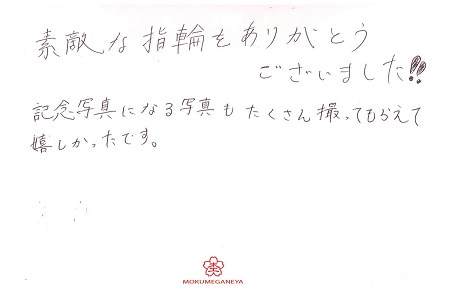 素敵な指輪をありがとう
ございました!!
記念写真になる写真もたくさん撮ってもらえて
嬉しかったです。
MOKUMEGANEYA